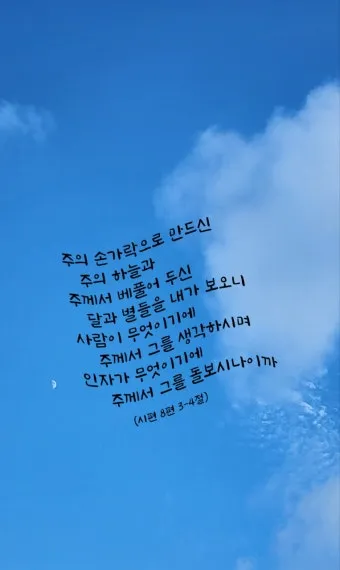 주의 손가락으로 만드신
주의 하늘과
주께서 베풀어 두신
달과 별들을 내가 보오니
사람이 무엇이기에
주께서 그를 생각하시며
인자가 무엇이기에
주께서 그를 돌보시나이까
(시편 8편 3-4절)